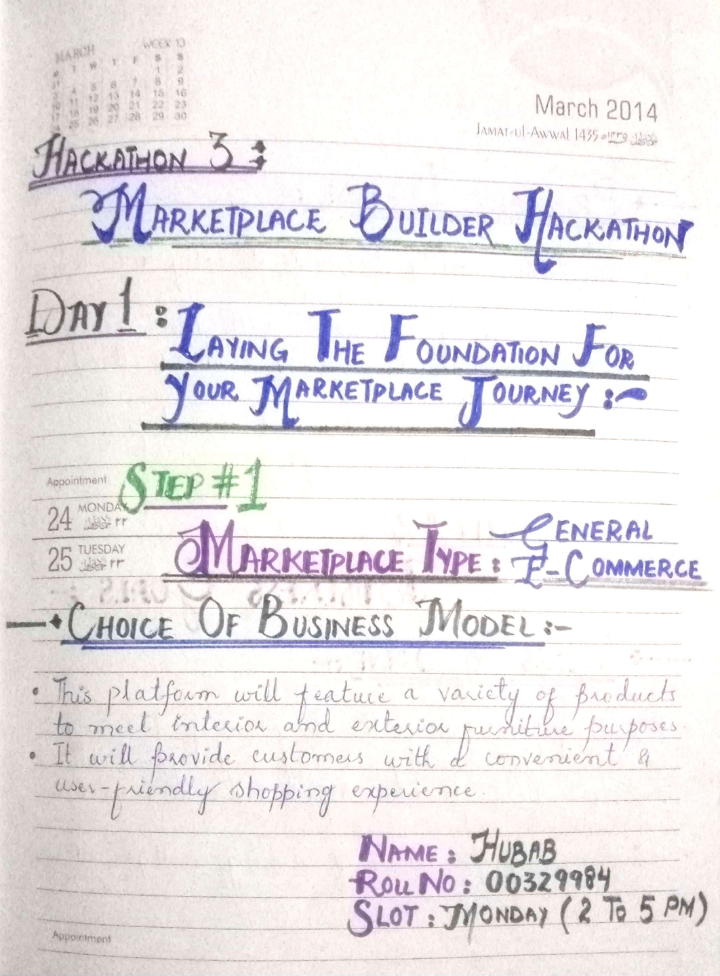 MARCH WEEK 13
T W T F S S
1 2
4 5 6 7 8 9
11 12 13 14 15 16
17 18 19 20 21 22 23
25 26 27 28 29 30
March 2014
Jamat-ul-Awwal 1435
HACKATHON 3 :
MARKETPLACE BUILDER HACKATHON
DAY 1 : LAYING THE FOUNDATION FOR
YOUR MARKETPLACE JOURNEY :-
Appointment
STEP #1
24 MONDAY ٢٢
25 TUESDAY ٢٣
MARKETPLACE TYPE : GENERAL
E-COMMERCE
CHOICE OF BUSINESS MODEL :-
• This platform will feature a variety of products
to meet interior and exterior furniture purposes.
• It will provide customers with a convenient &
user-friendly shopping experience.
NAME : HUBAB
ROLL NO : 00329984
SLOT : MONDAY ( 2 TO 5 PM )
Appointment